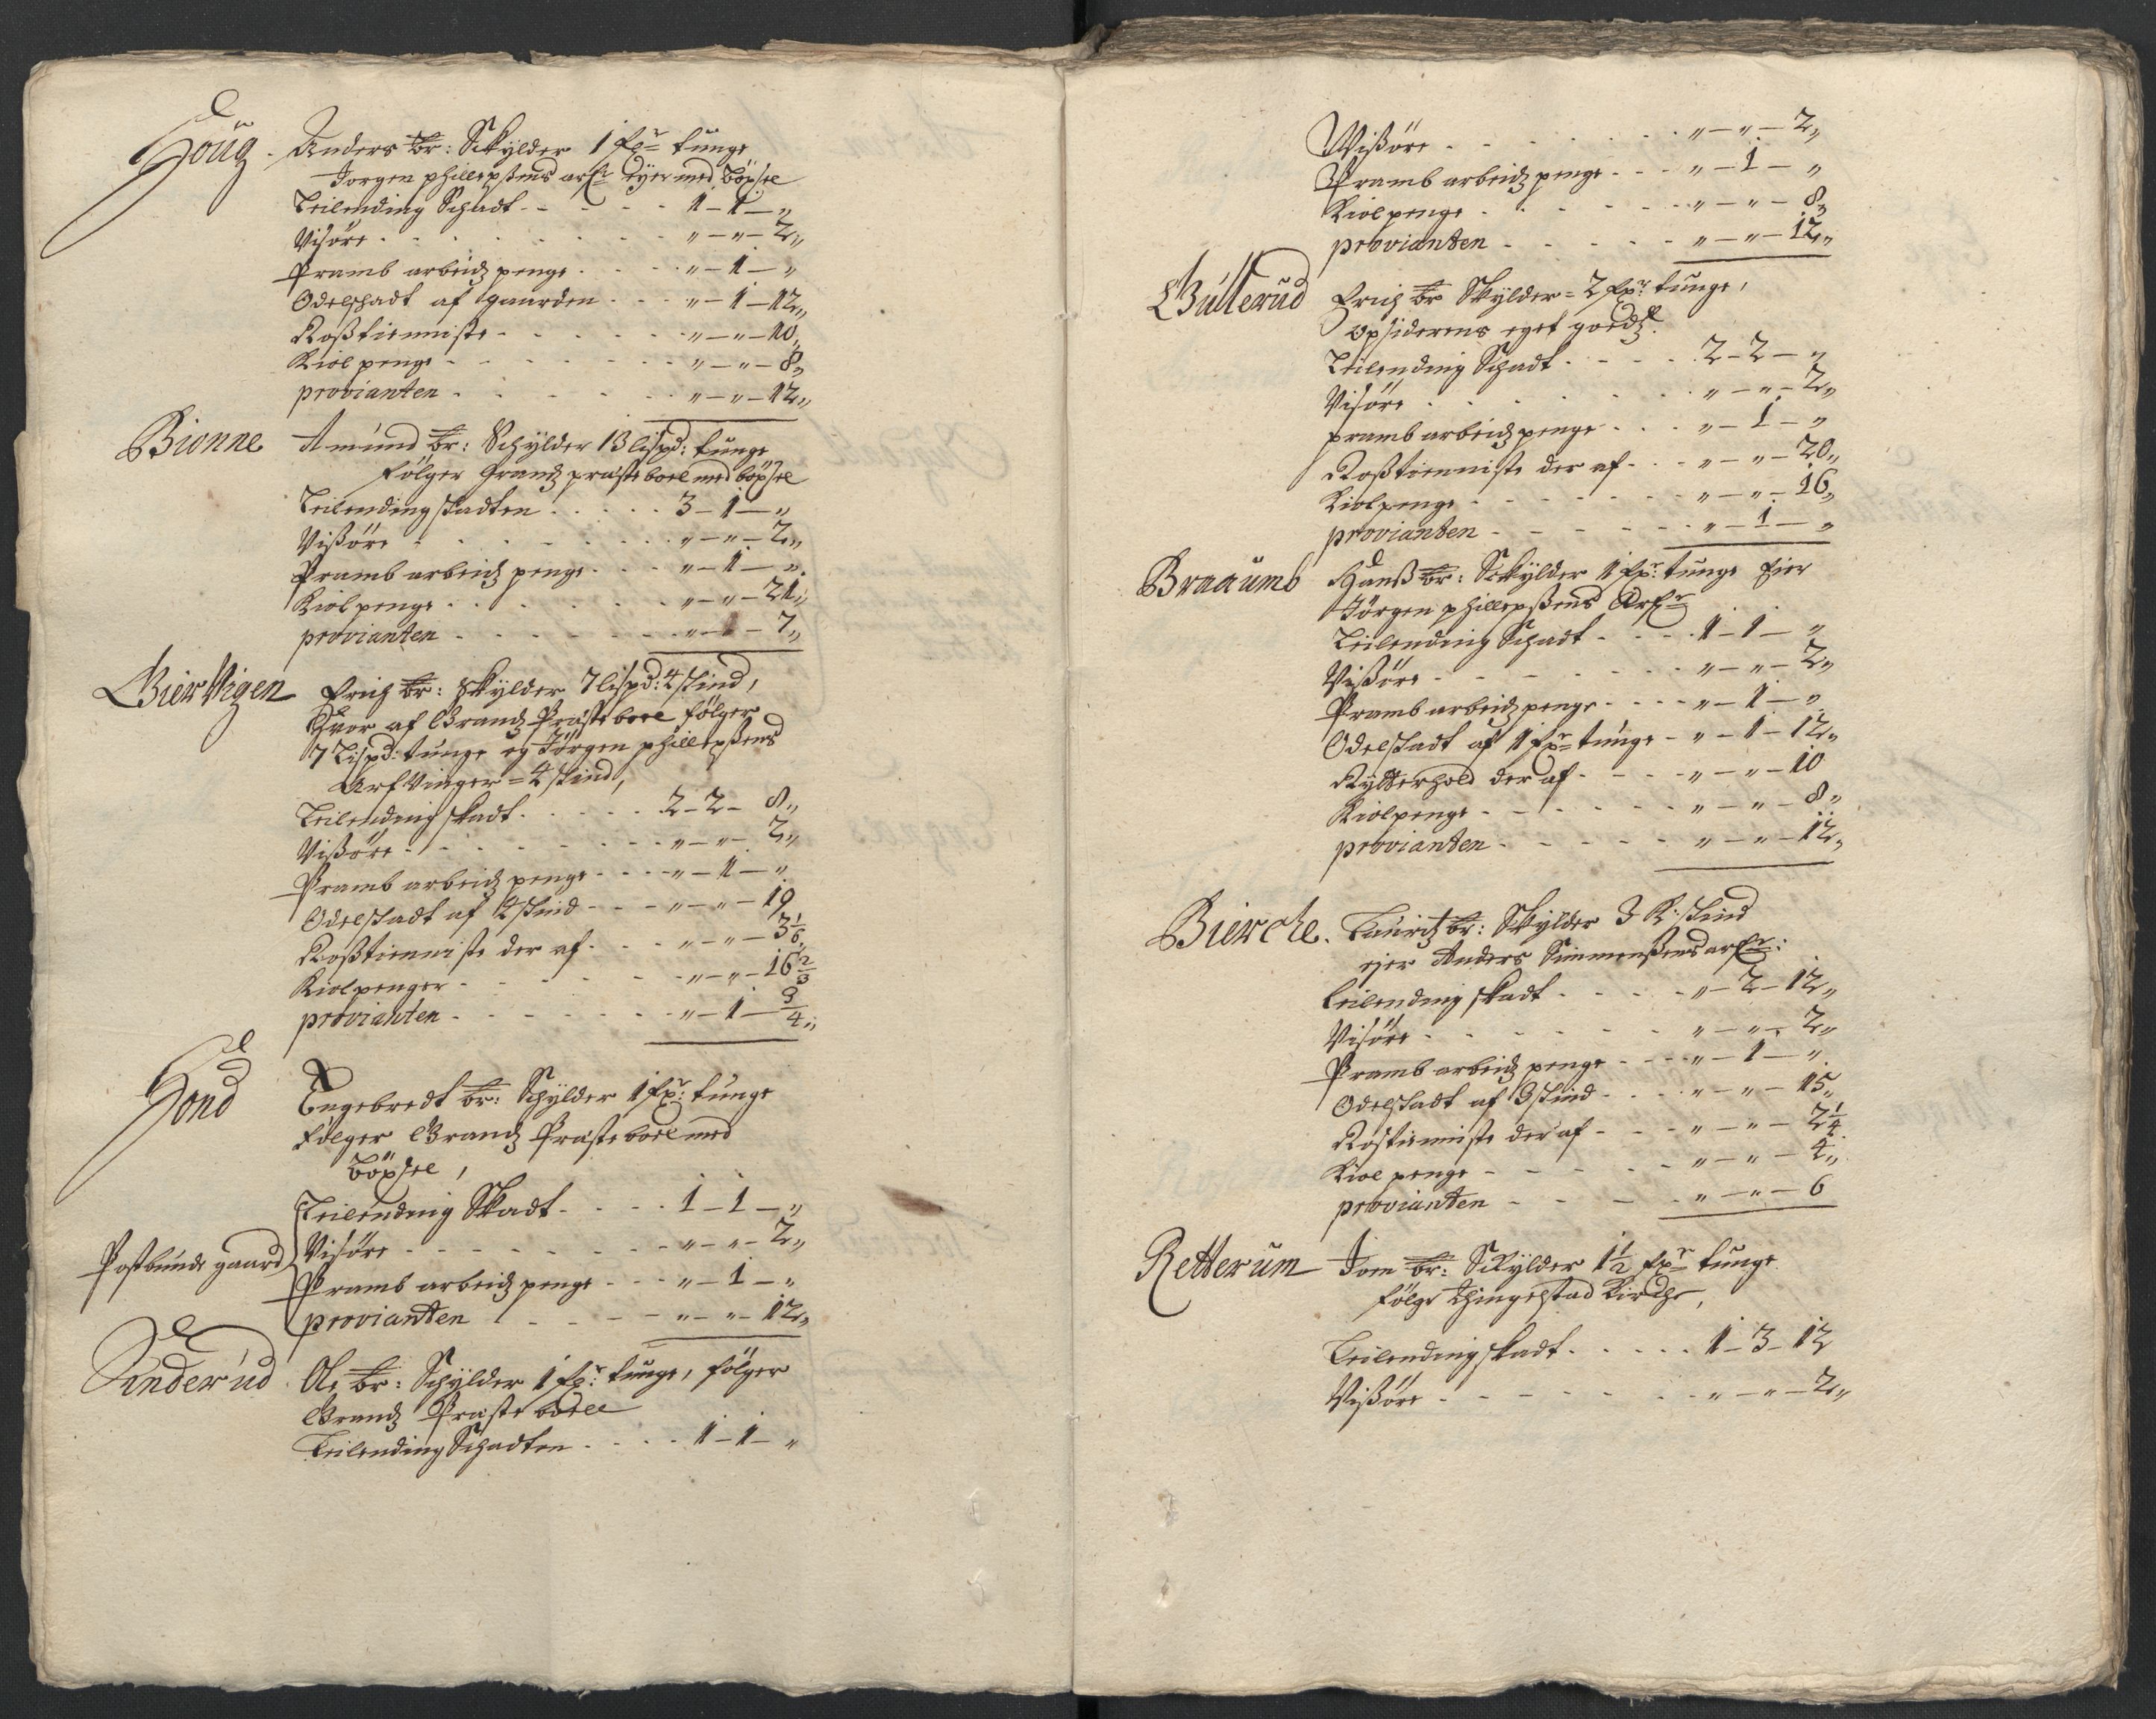 Houg. Anders br: Skylder 1 fpr tunge
Jorgen phillepßens arfr eyer med böxsel
Leilending Schadt - - - - 1 - 1 - „
Visöre - - - - „ - „ - 2„
Pramb arbeidz penge - - „ - 1 - „
Odelschadt af gaarden - - „ - 1 - 12„
Roßtienniste - - - „ - „ - 10„
Kiol penge - - - „ - „ - 8„
provianten - - - „ - „ - 12„
Bionne Amund br: Schylder 13 lispd: tunge
følger Grandz præsteboel med böxsel
Leilending skadten - - - 3 - 1 - „
Vißöre - - - „ - „ - 2„
Pramb arbeidz penge - - „ - 1 - „
Kiol penge - - - „ - „ - 21„
provianten - - - „ - „ - 7„
Bierwigen Erich br: Skylder 7 lispd: 4 skind,
Hvor af Grandz Præsteboel følger
7 Lispd: tunge og Jörgen phillepßens
Arfvinger = 4 skind,
Leilending skadt - - - 2 - 2 - 8„
Vißöre - - - „ - „ - 2„
Pramb arbeidz penge - - - „ - 1 - „
Odelskadt af 4 skind - - - „ - „ - 19
Roßtienniste der af - - - „ - „ - 3 1/6
Kiolpenger - - - „ - „ - 16 2/3
provianten - - - „ - 1 - 3/4„
Hond Engebredt br: Schylder 1 fpr: tunge
følger Grandz Præsteboel med
böxsel,
Leilending Skadt - - - 1 - 1 - „
Postbunde gaard Visöre - - - „ - „ - 2„
Pramb arbeidz penge - - - „ - 1 - „
provianten - - - „ - „ - 12„
Anderud Ole br: Schylder 1 fpr: tunge, følger
Grandz Præsteboell
Leilending Schadten - - - 1 - 1 - „
Wißöre - - - „ - „ - 2„
Pramb arbeidz penge - - - „ - 1 - „
Kiolpenge - - - „ - „ - 8„
provianten - - - „ - „ - 12„
Bulterud Erich br Skylder = 2 fpr: tunge,
opsiderens eget goedz.
Leilending Schadt - - - 2 - 2 - „
Visöre - - - „ - „ - 2„
pramb arbeidz penge - - - „ - 1 - „
Roßtienniste der af - - - „ - „ - 20„
Kiolpenge - - - „ - „ - 16„
provianten - - - „ - 1 - „
Braaumb Hanß br: Skylder 1 fpr: tunge Eier
Jörgen phillepßens Arfr
Leilending Schadt - - - 1 - 1 - „
Vißöre - - - „ - „ - 2„
Pramb arbeidz penge - - - „ - 1 - „
Odelskadt af 1 fpr tunge - „ - 1 - 12„
Rytterhold der af - - - „ - „ - 10
Kiolpenge - - - „ - „ - 8„
provianten - - - „ - „ - 12„
Bierche. Lauridz br: Skylder 3 K: skind
ejer Anders Simmenßens arfr:
Leilending skadt - - - „ - 2 - 12„
Visöre - - - „ - „ - 2„
Pramb arbeidz penge - - - „ - 1 - „
Odelskadt af 3 skind - - - „ - „ - 15„
Rostienniste der af - - - „ - „ - 2 1/4
Kiol penge - - - „ - „ - 4„
provianten - - - „ - „ - 6
Retterum Joen br: Skylder 1 1/2 fpr tunge
følge Thingelstad Kirche,
Leilending skadt - - - 1 - 3 - 12
Vißöre - - - „ - „ - 2„